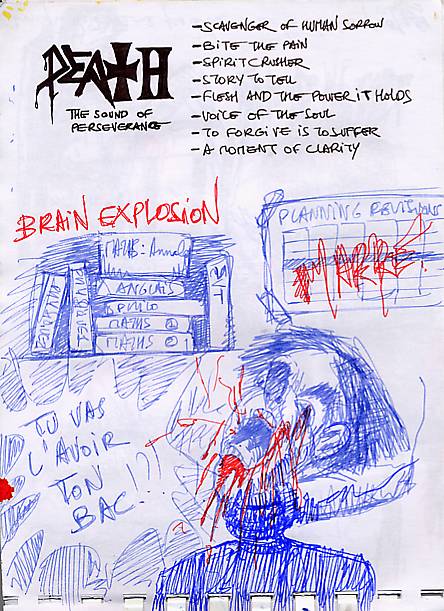 DEATH
THE SOUND OF
PERSEVERANCE
-SCAVENGER OF HUMAN SORROW
-BITE THE PAIN
-SPIRIT CRUSHER
-STORY TO TELL
-FLESH AND THE POWER IT HOLDS
-VOICE OF THE SOUL
-TO FORGIVE IS TO SUFFER
-A MOMENT OF CLARITY
BRAIN EXPLOSION
PLANNING REVISIONS
MARRE!
MATHS: Annales
ANGLAIS
PHILO
MATHS ①
MATHS ②
PHYSIQUE
TU VAS
L'AVOIR
TON
BAC!!?